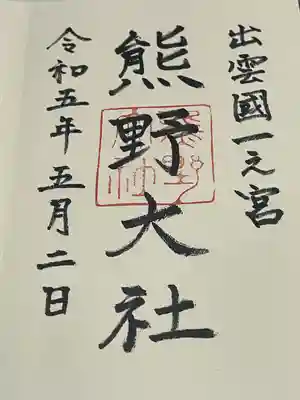 出雲國一之宮
熊野大社
令和五年五月二日